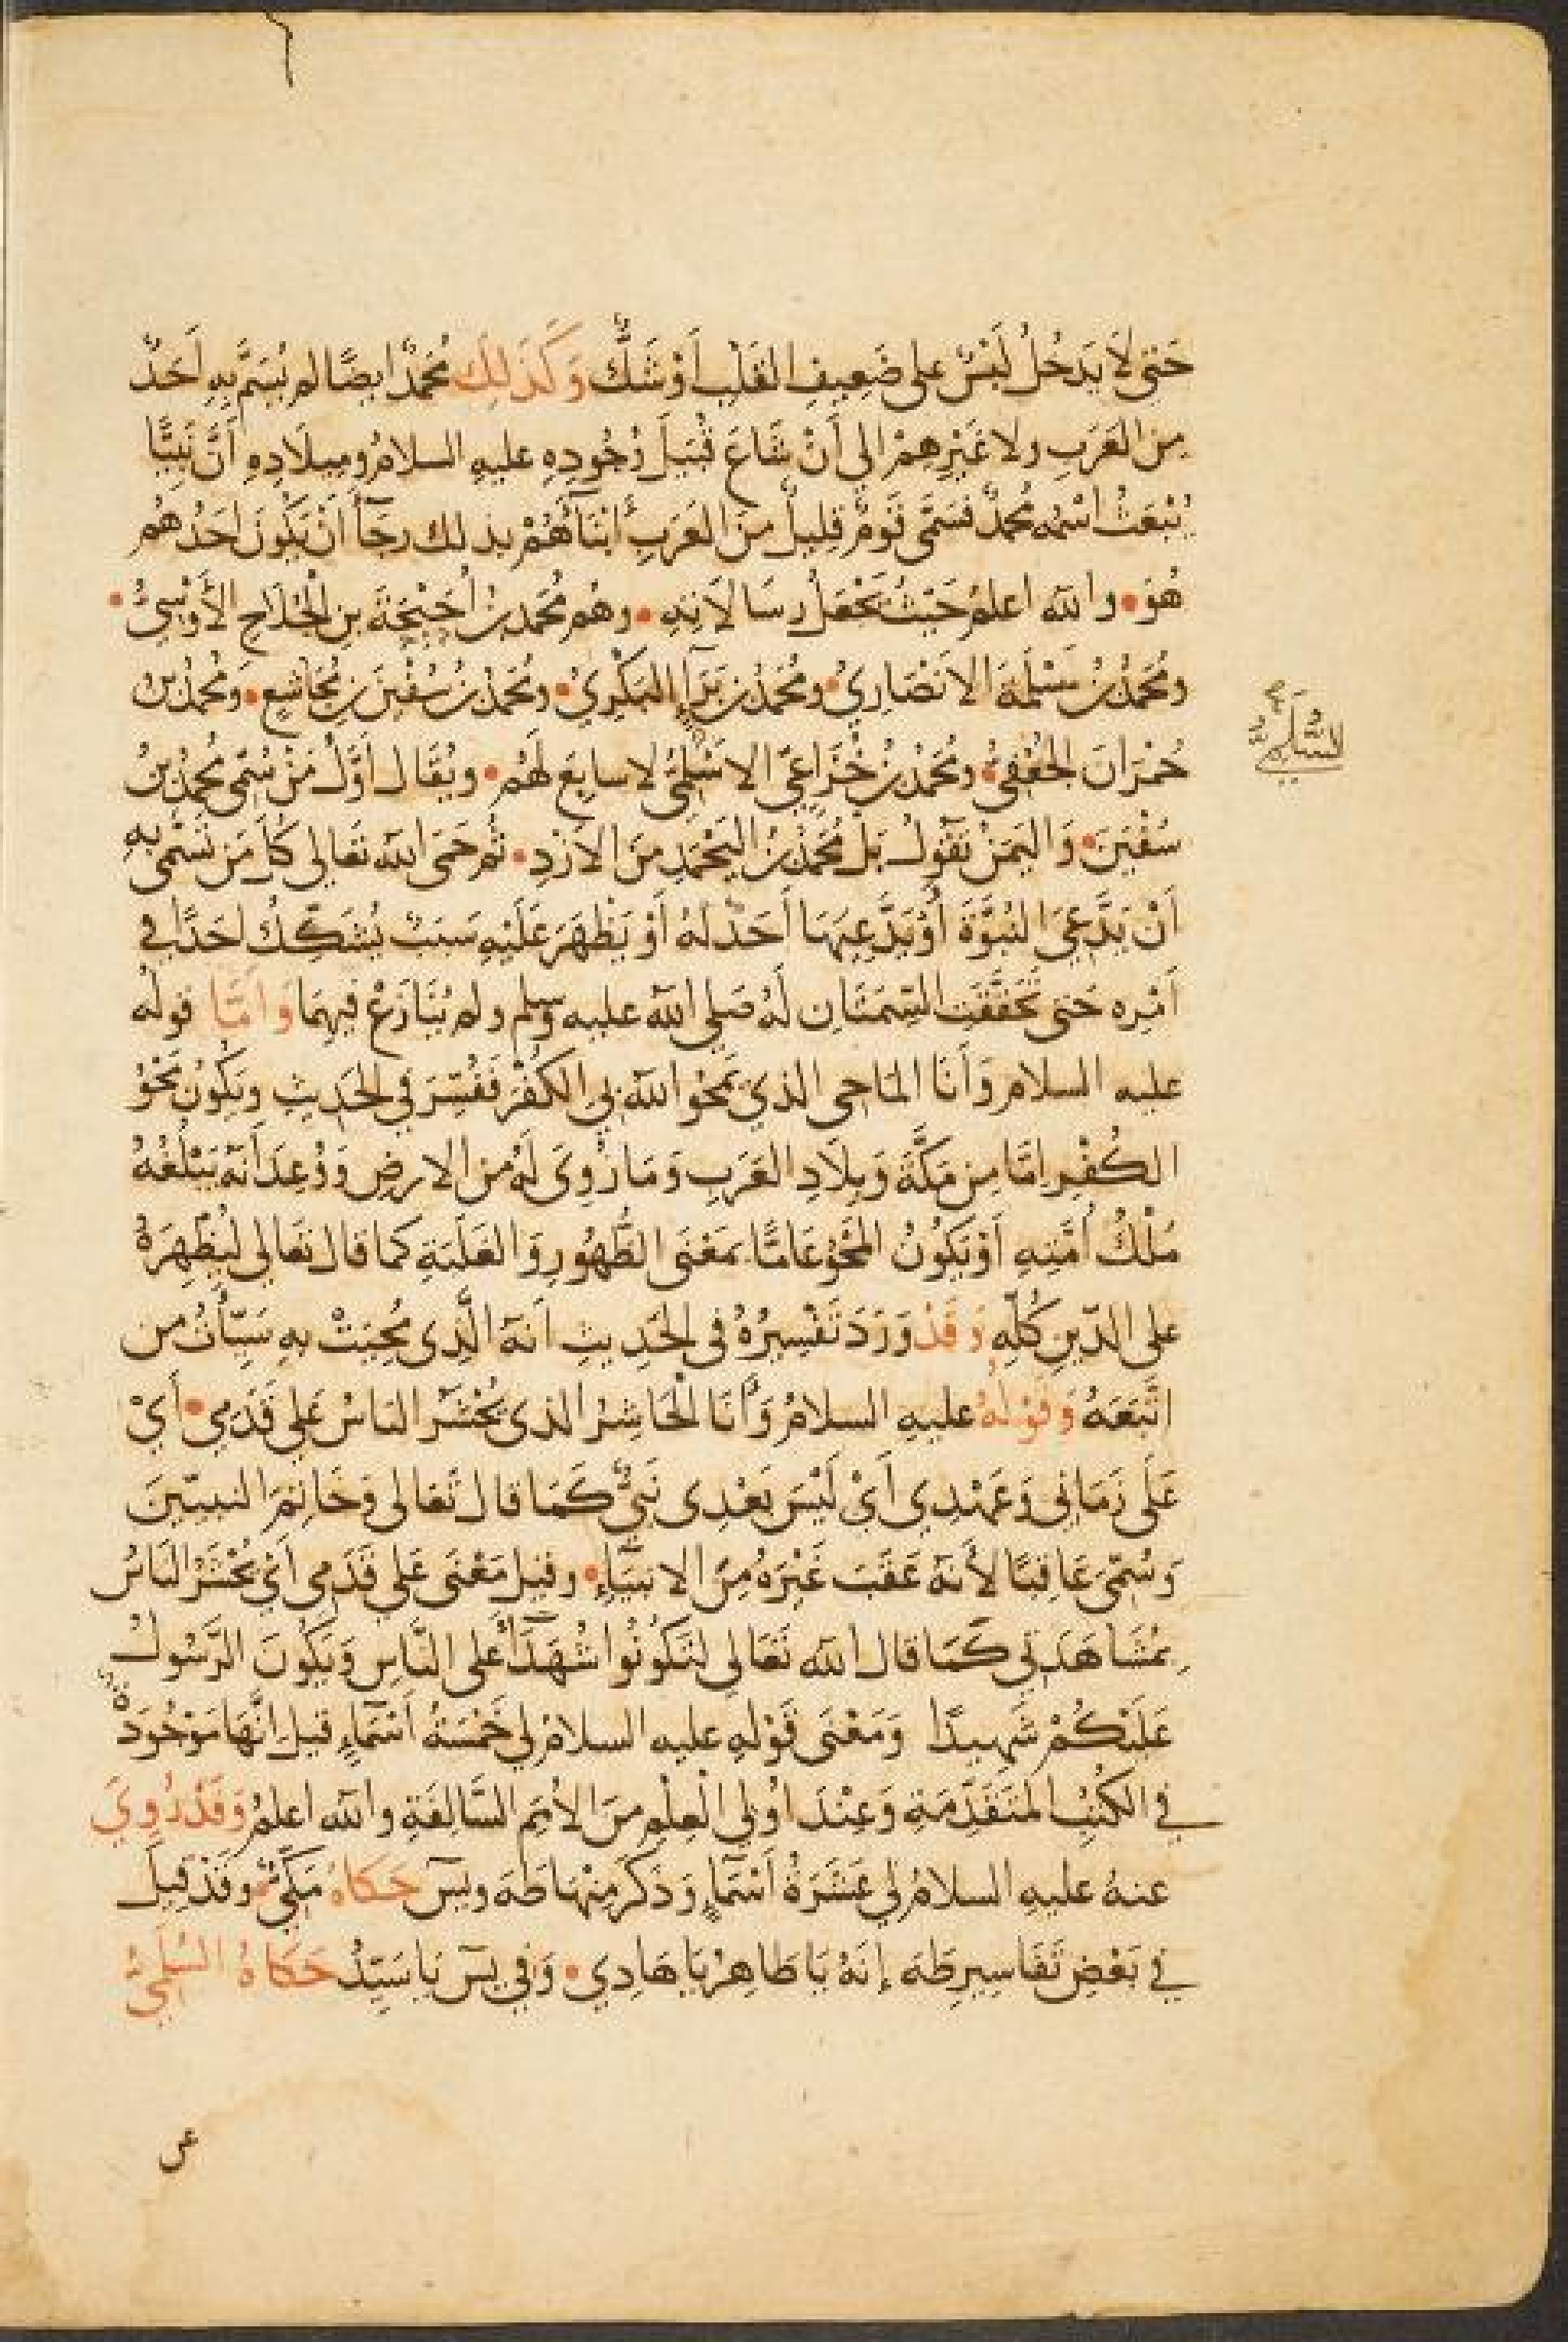 حَتى لَا يَدخُلُ لَبْسٌ على ضَعِيفِ القَلبِ أَوْ شَكٌّ وَكَذَلِكَ مُحَمَّدٌ ايضًا لم يُسَمَّ بِهِ اَحَدٌ
مِنَ العَرَبِ ولا غَيْرِهِمْ الى أَنْ شَاعَ قُبَيلَ وُجُودِهِ عليهِ السلامُ ومِيلَادِهِ أَنَّ نَبِيًّا
يُبْعَثُ اسْمُه مُحمدٌ فسَمَّى قَومٌ قلِيلٌ منَ العَرَبِ ابْنَآهُمْ بذلك رجَآءَ انْ يَكُونَ احَدُهُم
هُوَ • والله اعلمُ حَيْثُ يَجْعَلُ رسَالَاتِهِ • وهُم مُحَمدبنُ اُحَيْحَةَ بنِ الْجُلَاحِ الأَوْسِيُّ •
ومُحَمَّدُ بنُ مَسْلَمَةَ الانَصَارِيُّ • ومُحَمدُ بن بَرَآءٍ البَكْرِيُّ • ومُحَمدُ بنُ سُفْيَنَ بنِ مُجَاشِعٍ • ومُحمدُ بنُ
حُمْرَانَ الجُعْفِيُّ • ومُحَمدُ بنُ خُزَاعِيّ الاسْلَمِيُّ لا سابِعَ لَهُم • ويُقَال اَوَّلُ مَنْ سُمّى مُحمدُ بنُ
السُّلَمِيُّ صح
سُفْيَنَ • وَاليَمَنُ تَقُولُ بَلْ مُحَمدُ بنُ اليَحْمَدِ مِنَ الاَزْدِ • ثم حَمَى الله تَعَالى كلَّ مَن تَسَمّى بهِ
أَنْ يَدَّعِىَ النُبُوَّةَ أَوْ يَدَّعِيَهَا أَحَدٌ لهُ أَوْ يَظْهَرَ عَلَيْهِ سَبَبٌ يُشَكِّكُ احَدًا فى
اَمْرِه حَتى تَحَقَّقَتِ السِّمَتَانِ لَهُ صَلى الله عليه وسلم ولم يُنَازَعْ فِيهِمَا وَاَمَّا قولُه
عليه السلام وَأَنَا المَاحى الذي يَمْحُو الله بِىَ الكُفْرَ فَفُسِّرَ فى الحَدِيثِ ويَكُونُ مَحْوُ
الكُفْرِ امَّا مِن مَكَّةَ وَبِلَادِ العَرَبِ وَمَا زُوِىَ لَهُ من الارضِ وَوُعِدَ اَنَّه يَبْلُغُهُ
مُلْكُ اُمَّتِهِ اَوْ يَكُونُ المَحْوُ عَامًّا بمَعْنَى الظُّهُورِ وَالغَلَبَةِ كما قال تعَالى لِيُظْهِرَهُ
على الدّينِ كُلِّهِ وَقَدْ وَرَدَ تَفْسِيرُهُ فى الحَدِيثِ اَنَّه الَّذِى مُحِيَتْ بهِ سَيِّأتُ من
اتَّبَعَهُ وَقَوْلُهُ عليهِ السلامُ وَأَنَا الْحَاشِرُ الذى يُحْشَرُ الناسُ عَلى قَدَمِى • أَيْ
عَلَى زَمَانِى وَعَهْدِي أَىْ لَيْسَ بَعْدِى نَبِىٌّ كَمَا قال تَعَالى وَخَاتِمَ النبيّينَ
وَسُمّىَ عَاقِبًا لأَنَّهُ عَقَبَ غَيْرَهُ مِنَ الانبِيَآءِ • وقيل مَعْنَى عَلى قَدَمِى اَيْ يُحْشَرُ النَاسُ
بِمُشَاهَدَتي كَمَا قال الله تَعَالى لِتَكُونُوا شُهَدَآءَ على النَّاسِ وَيَكُونَ الرَّسُولُ
عَلَيْكُمْ شَهِيدًا وَمَعْنَى قَوْلِهِ عليه السلامُ لى خَمْسَةُ اَسْمَآءٍ قيل انَّهَا مَوْجُودَةٌ
فى الكُتُبِ المتَقَدِّمَةِ وَعِنْدَ اُولِى الْعِلْمِ منَ الاُمَمِ السَّالِفَةِ والله اعلمُ وَقَدْ رُوِىَ
عنهُ عليهِ السلامُ لى عَشَرَةُ اَسْمَآءٍ وَذَكَرَ مِنْهَا طَهَ ويسَ حَكاهُ مَكِّىٌّ وقَدْ قِيلَ
فى بَعْضِ تَفَاسِيرِ طَهَ إنَهُ يَا طَاهِرُ يَا هَادِي • وَفى يسَ يَا سَيِّدُ حَكَاهُ السُّلَمِىُّ
عن